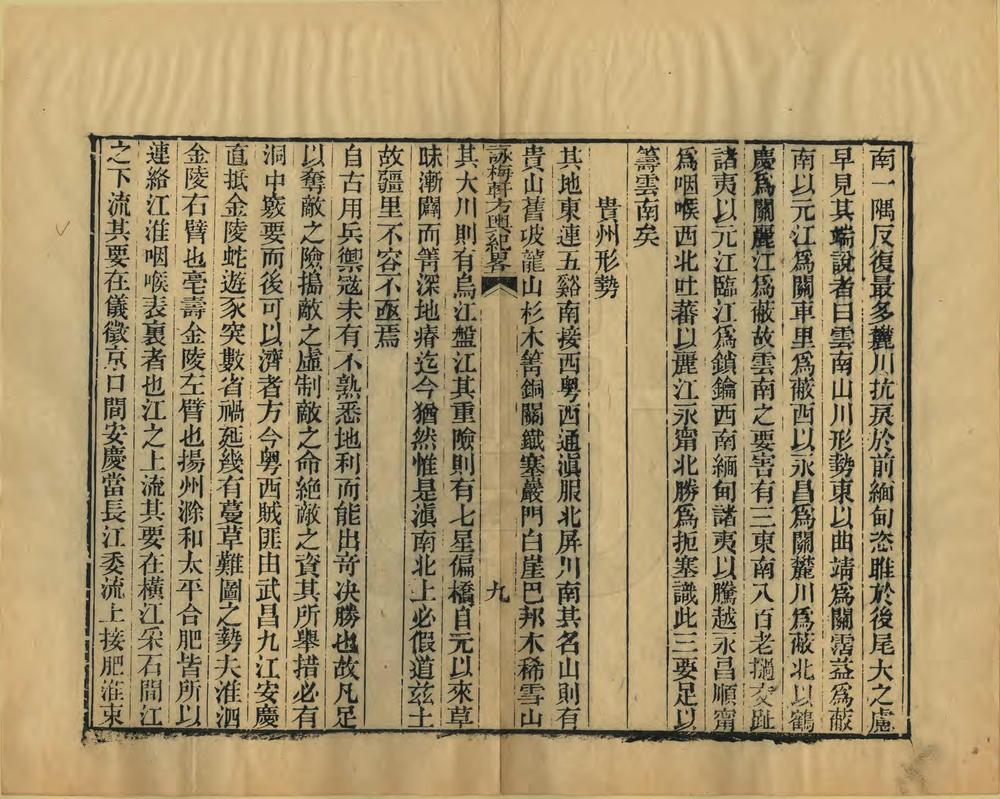 南一隅反復最多麓川抗戾於前緬甸恣睢於後尾大之慮
早見其端說者曰雲南山川形勢東以曲靖爲關霑益爲蔽
南以元江爲關車里爲蔽西以永昌爲關麓川爲蔽北以鶴
慶爲關麗江爲蔽故雲南之要害有三東南八百老撾交趾
諸夷以元江臨江爲鎖鑰西南緬甸諸夷以騰越永昌順甯
爲咽喉西北吐蕃以麗江永甯北勝爲扼塞識此三要足以
籌雲南矣
貴州形勢
其地東連五谿南接西粵西通滇服北屏川南其名山則有
貴山舊坡龍山杉木箐銅關鐵塞嚴門白崖巴邦木稀雪山
詠梅軒方輿紀畧
九
其大川則有烏江盤江其重險則有七星偏橋自元以來草
昧漸闢而箐深地瘠迄今猶然惟是滇南北上必假道茲土
故疆里不容不亟焉
自古用兵禦寇未有不熟悉地利而能出奇決勝也故凡足
以奪敵之險搗敵之虛制敵之命絕敵之資其所舉措必有
洞中竅要而後可以濟者方今粵西賊匪由武昌九江安慶
直抵金陵蛇遊豕突數省禍延幾有蔓草難圖之勢夫淮泗
金陵右臂也亳壽金陵左臂也揚州滁和太平合肥皆所以
連絡江淮咽喉表裏者也江之上流其要在橫江采石間江
之下流其要在儀徵京口間安慶當長江委流上接肥淮東